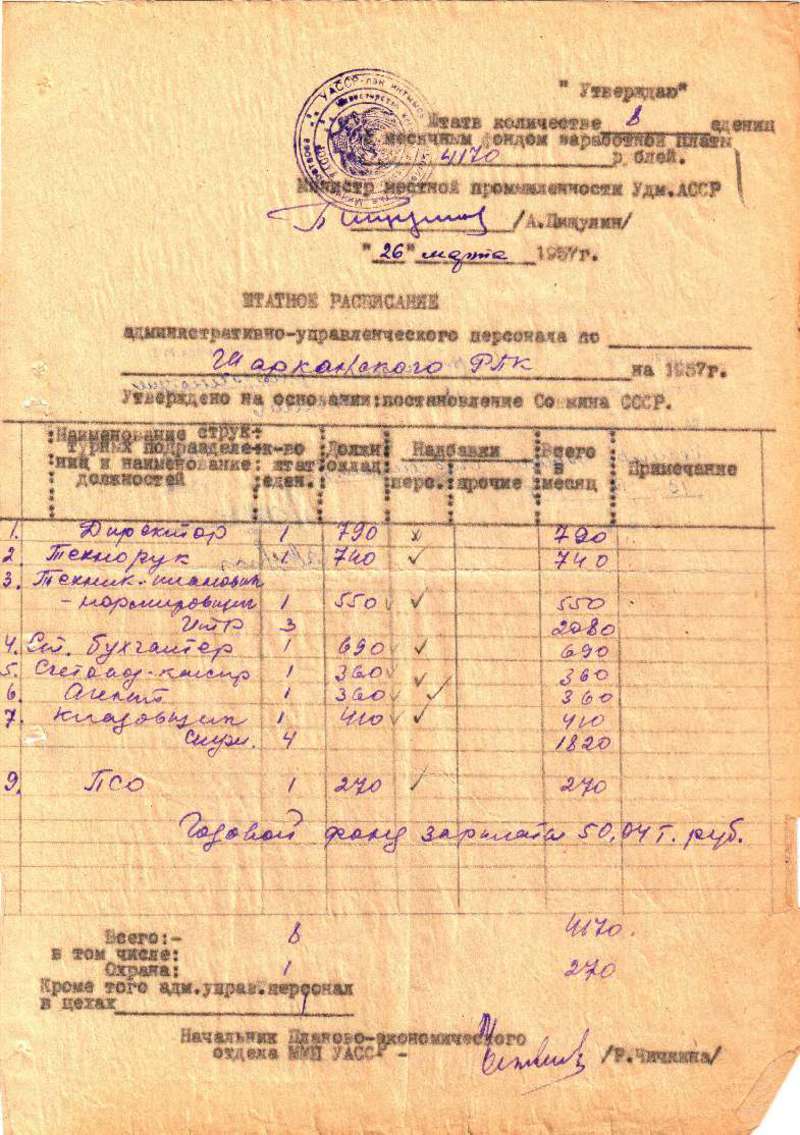 " Утверждаю"
Штатв количестве 8 едениц
месячным фондом заработной платы
4170 р блей.
Министр местной промышленности Удм.АССР
/А.Пищулин/
"26" марта 1957г.
ШТАТНОЕ РАСПИСАНИЕ
административно-управленческого персонала по
Шарканского РПК на 1957г.
Утверждено на основании:постановление Совмина СССР.
Наименование струк- турных подразделе- ниц и наименование должностей к-во штат еден. Должн оклад Надбавки перс. прочие Всего в месяц Примечание
1. Директор 1 790 790
2 Технорук 1 740 740
3. Техник-плановик
-нормировщик 1 550 550
ИТР 3 2080
4. Ст. бухгалтер 1 690 690
5. Счетовод-кассир 1 360 360
6. Агент 1 360 360
7. Кладовщик 1 410 410
Служ. 4 1820
9. ПСО 1 270 270
Годовой фонд зарплаты 50,04 т. руб.
Всего:- 8 4170.
в том числе:
Охрана: 1 270
Кроме того адм.управ.персонал
в цехах
Начальник Планово-экономического
отдела ММП УАССР - /Р.Чичкина/